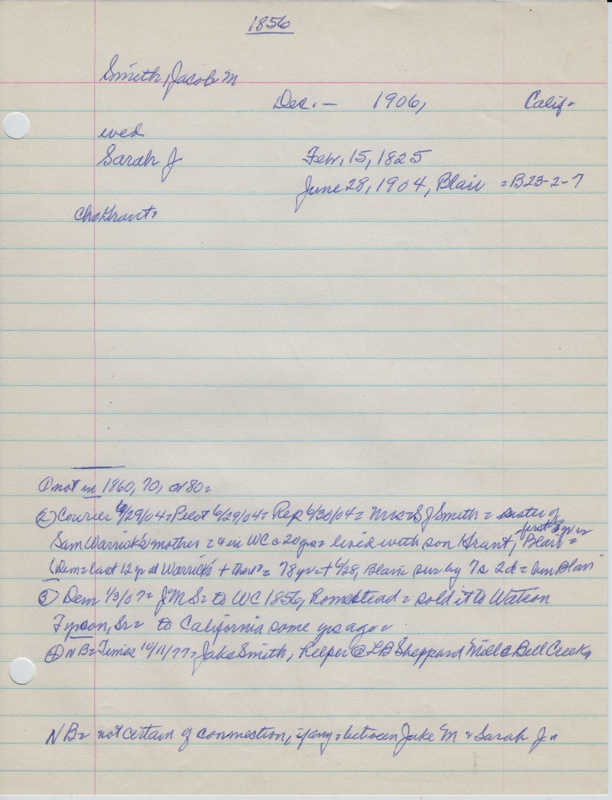 1856
Smith, Jacob M
Dec. – 1906, Calif.
wed
Sarah J Feb, 15, 1825
June 28, 1904, Blair = B23-2-7
Ch= Grant=
① not in 1860, 70, or 80=
② Courier 6/29/04= Pilot 6/29/04= Rep 6/30/04= Mrs= S J Smith = sister of
Sam Warrick's mother = in WC c 20 yrs = lived with son Grant, first yr in Blair =
(Dem= last 12 yrs at Warrick's + there = 78 yrs + 6/28, Blair sur by 7s 2d = bur Blair
③ Dem 1/3/07= J M S= to WC 1856, Homestead = sold it to Watson
Tyson, Sr= to California some yrs ago=
④ NB= Times 10/11/77= Jake Smith, helper @ LB Sheppard Mill @ Bell Creek,
NB= not certain of connection, if any= between Jake M & Sarah J=